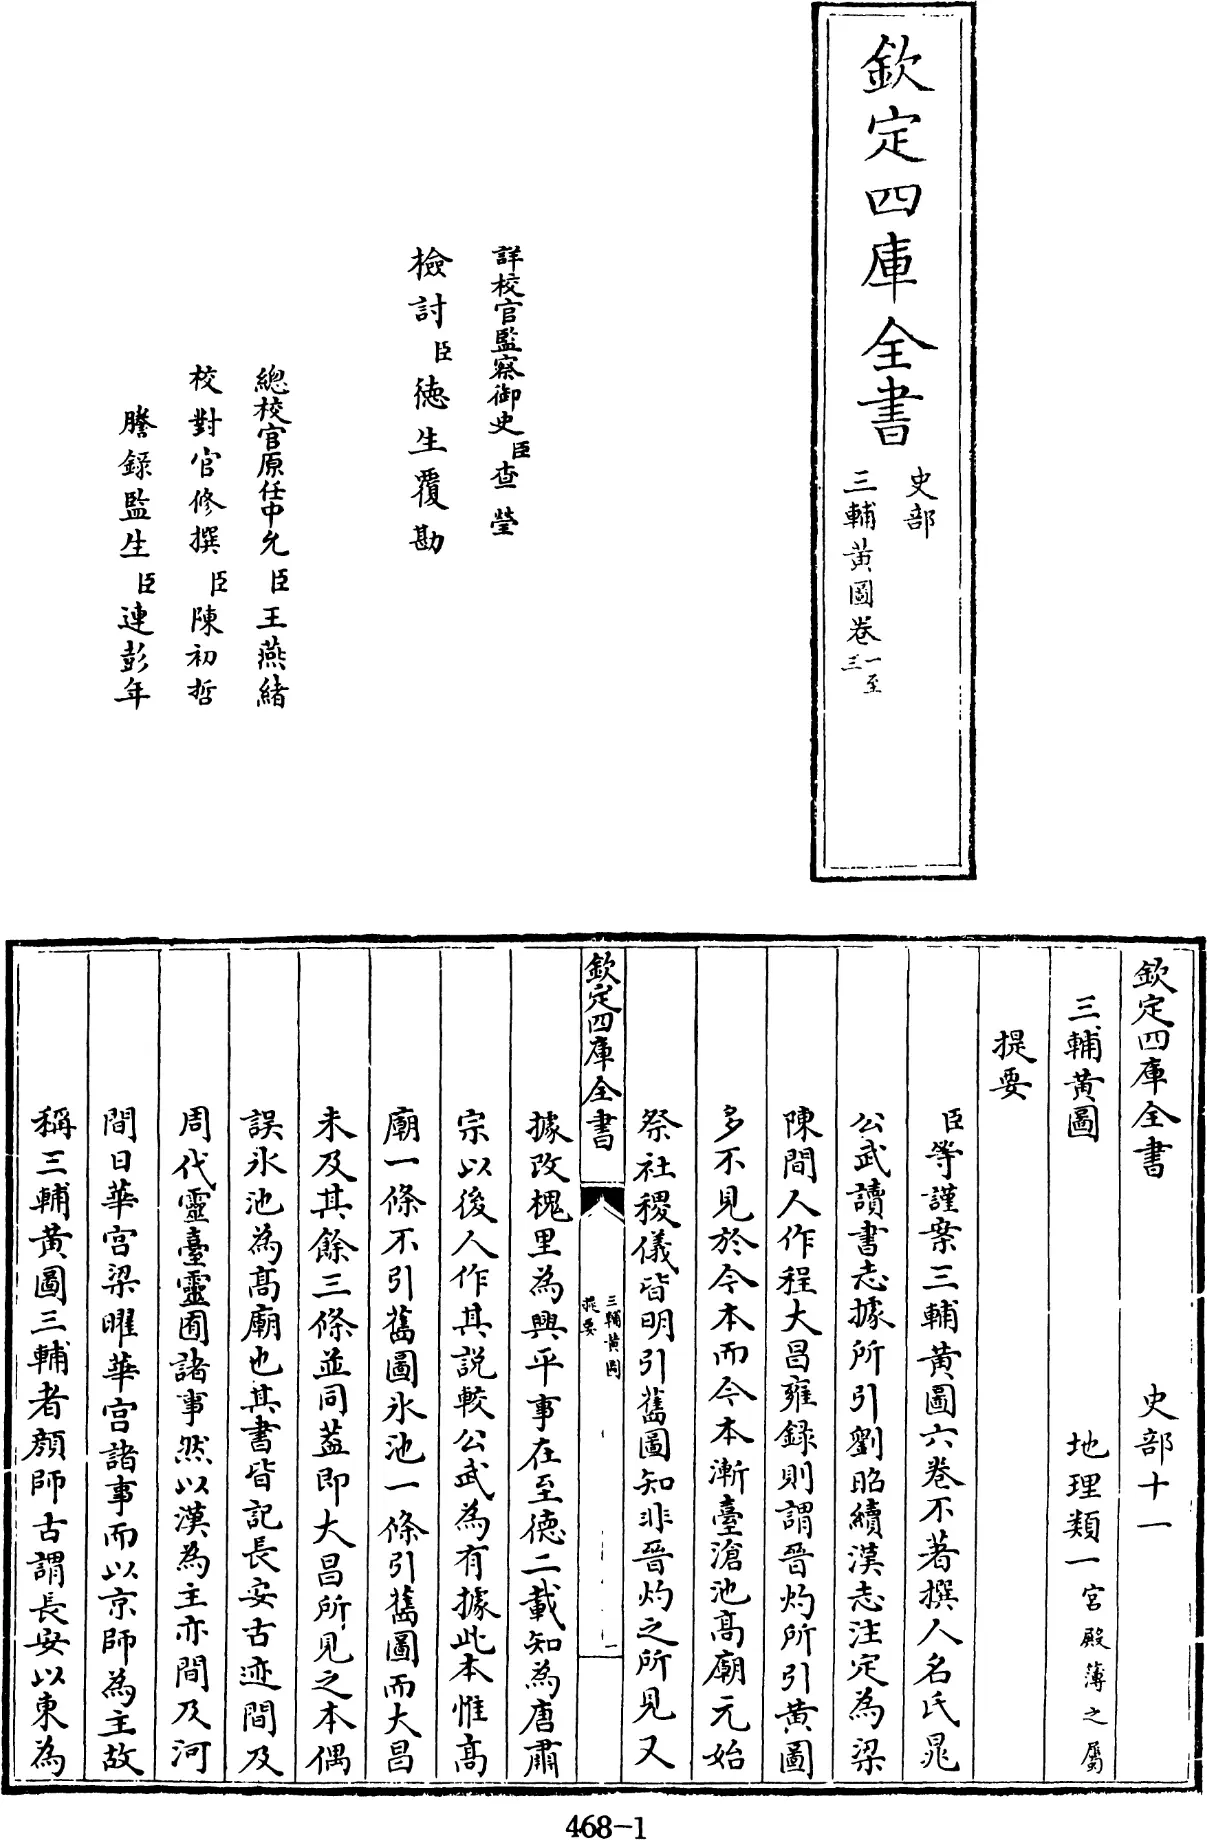 欽定四庫全書
史部
三輔黃圖卷一至三
詳校官監察御史臣查瑩
檢討臣德生覆勘
總校官原任中允臣王燕緒
校對官修撰臣陳初哲
謄錄監生臣連彭年
欽定四庫全書 史部十一
三輔黃圖 地理類一宮殿薄之屬
提要
臣等謹案三輔黃圖六卷不著撰人名氏晁
公武讀書志據所引劉昭續漢志注定為梁
陳間人作程大昌雍錄則謂晉灼所引黃圖
多不見於今本而今本漸臺滄池高廟元始
祭社稷儀皆明引舊圖知非晉灼之所見又
欽定四庫全書 三輔黃圖提要 一
據改槐里為興平事在至德二載知為唐肅
宗以後人作其說較公武為有據此本惟高
廟一條不引舊圖氷池一條引舊圖而大昌
未及其餘三條並同葢即大昌所見之本偶
誤氷池為高廟也其書皆記長安古迹間及
周代靈臺靈囿諸事然以漢為主亦間及河
間日華宮梁曜華宮諸事而以京師為主故
稱三輔黃圖三輔者顏師古謂長安以東為
468-1